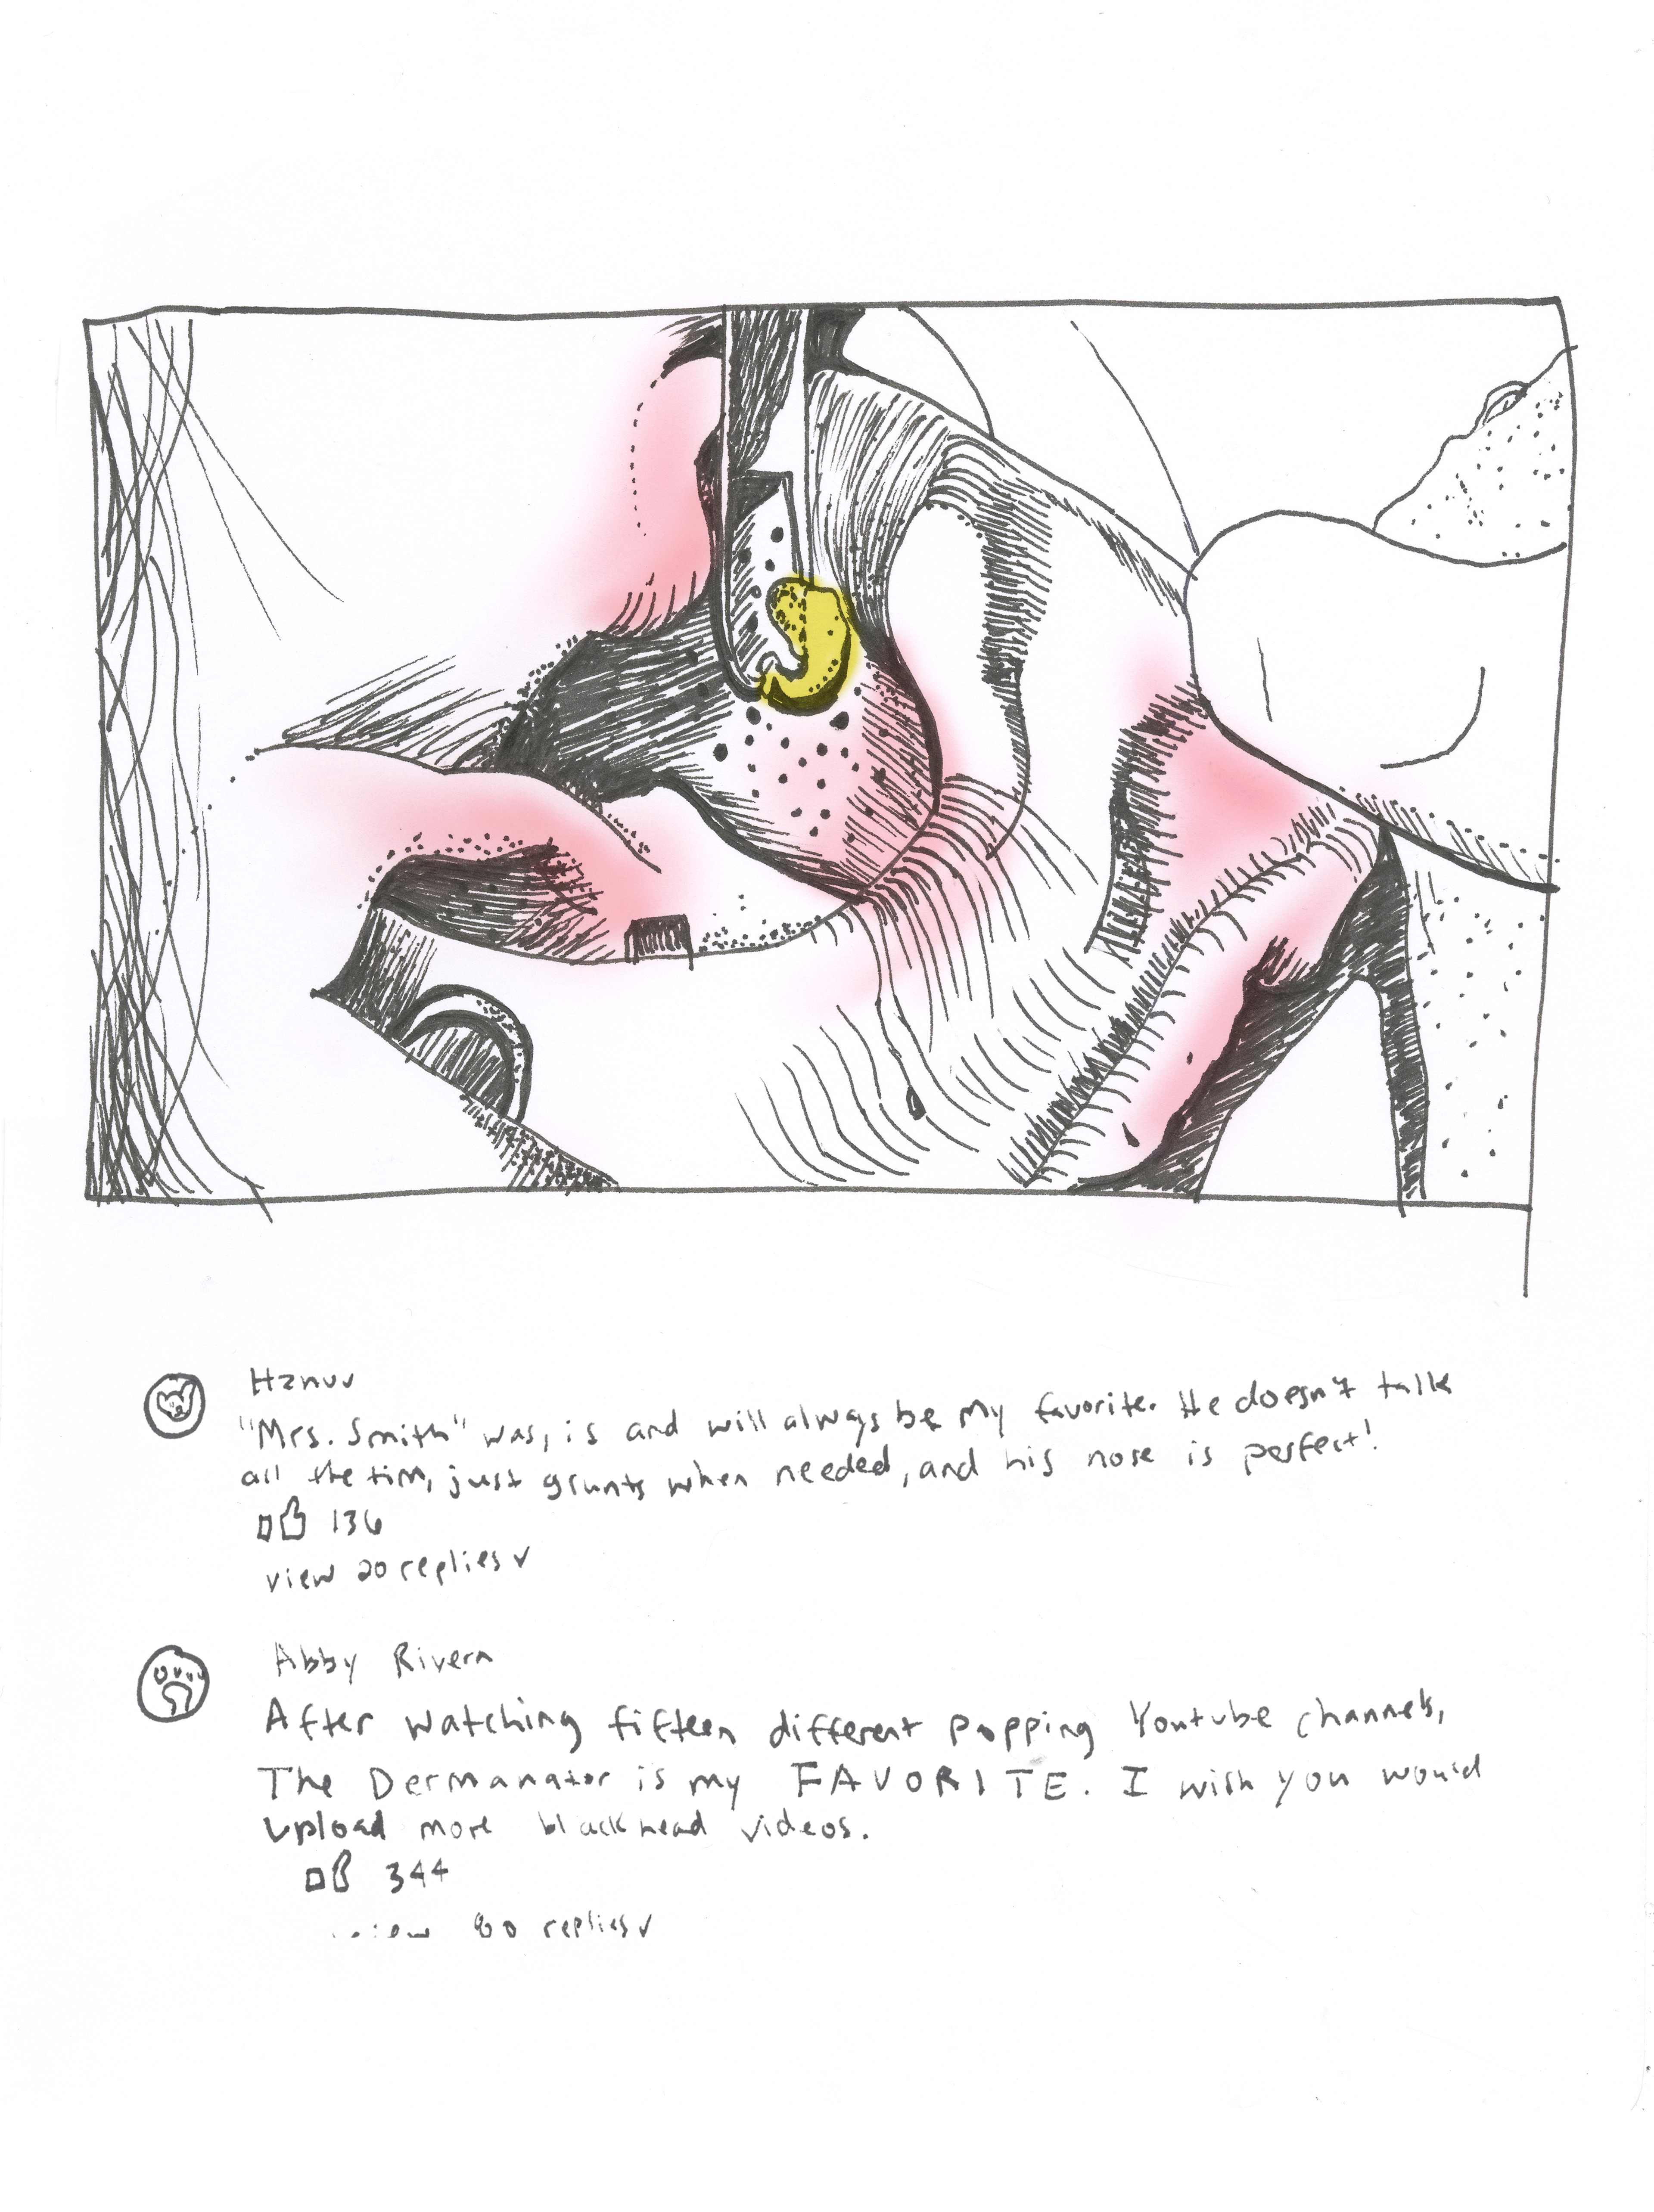 Hznuv
"Mrs. Smith" was, is and will always be my favorite. He doesn't talk
all the tim, just grunts when needed, and his nose is perfect!
136
view 20 replies
Abby Rivera
After watching fifteen different popping Youtube channels,
The Dermanator is my FAVORITE. I wish you would
upload more blackhead videos.
344
view 80 replies